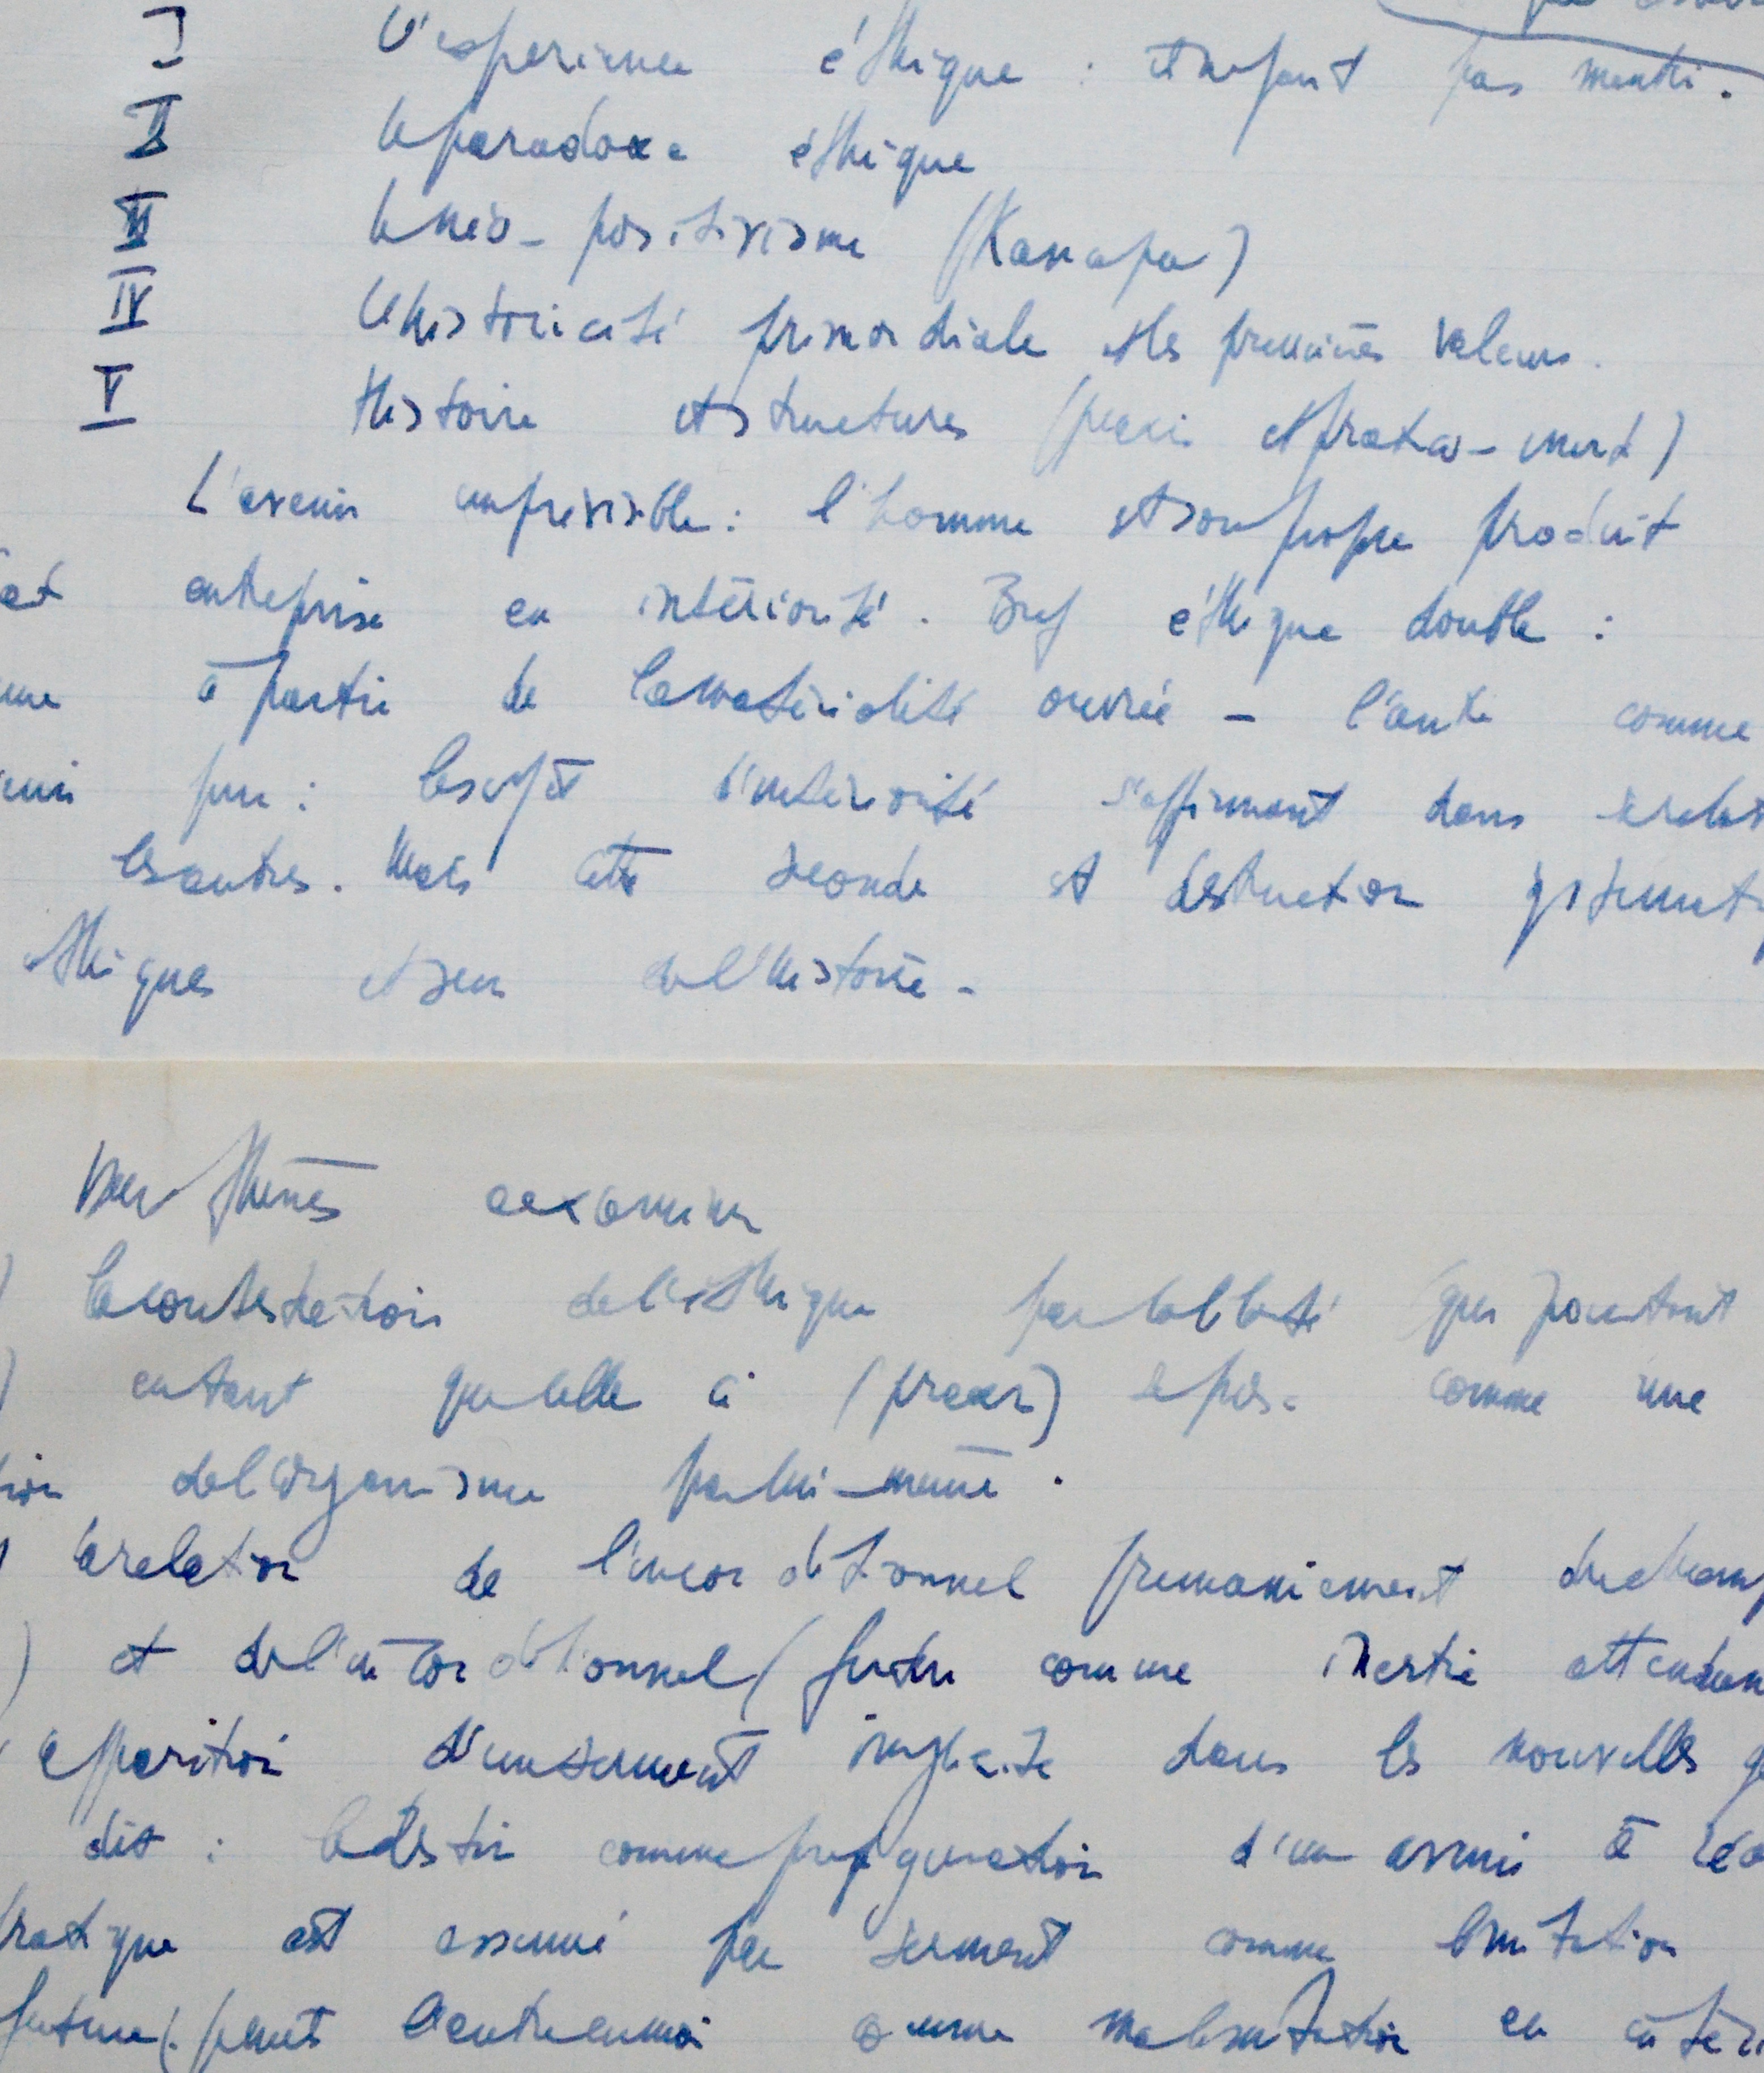 I L'expérience éthique : il ne faut pas mentir.
II Le paradoxe éthique
III Le néo-positivisme (Kanapa)
IV L'historicité primordiale et les premières valeurs.
V Histoire et structures (praxis et pratico-inerte)
L'avenir imprévisible : l'homme est son propre produit
entreprise en intériorité. Bref éthique double :
à partir de la matérialité ouvrée – l'autre comme
pur : les sujets d'intériorité s'affirmant dans
les autres. Mais cette seconde est destruction
éthiques et sens de l'histoire –
thèmes à examiner
La contestation de l'éthique par (qui pourtant
en tant que celle ci (praxis) se pose comme une
de l'organisme par lui-même.
La relation de l'inconditionnel
) et de l'inconditionnel (futur comme inertie
apparition d'un serment implicite dans les nouvelles
dit : le destin comme préfiguration d'un avenir à
est assumé par serment comme limitation
future comme ma limitation en